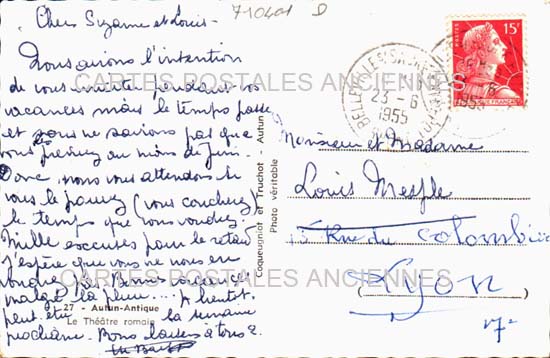 710401 D
Chers Suzanne et Louis -
Nous avions l'intention
de vous inviter pendant vos
vacances mais le temps passe
et nous ne savions pas que
vous preniez au mois de Juin.
Donc nous vous attendons si
vous le pouvez (vous coucherez)
le temps que vous voudrez.
Mille excuses pour le retard
J'espère que vous ne nous en
voudrez pas. Bonnes vacances
malgré la pluie... A bientôt
peut-être la semaine
prochaine. Bons baisers à tous 2.
27 - Autun-Antique
Le Théâtre romain
Coqueugniot et Truchot - Autun
Photo véritable
POSTES
15F
23-6
1955
Monsieur et Madame
Louis Mesple
Rue du Colombier
Lyon
(7e
CARTES POSTALES ANCIENNES
CARTES POSTALES ANCIENNES